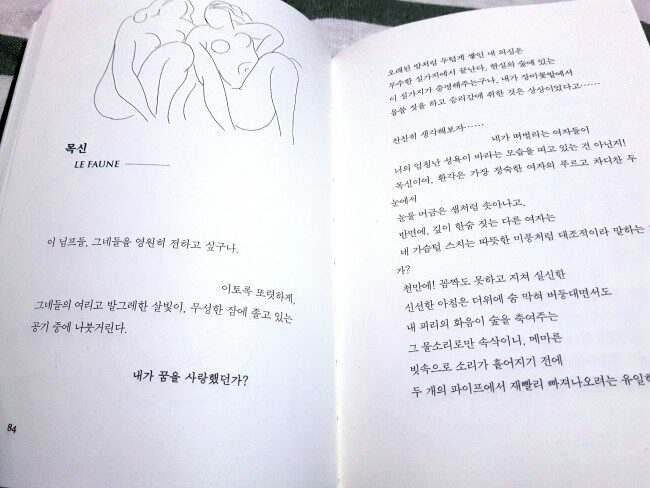 목신
LE FAUNE
이 님프들, 그네들을 영원히 전하고 싶구나.
이토록 또렷하게,
그네들의 여리고 발그레한 살빛이, 무성한 잠에 졸고 있는
공기 중에 나붓거린다.
내가 꿈을 사랑했던가?
84
오래된 밤처럼 두텁게 쌓인 내 의심은
무수한 실가지에서 끝난다. 현실의 숲에 있는
이 실가지가 증명해주는구나, 내가 장미꽃밭에서
몹쓸 짓을 하고 승리감에 취한 것은 상상이었다고……
찬찬히 생각해보자……
네가 떠벌리는 여자들이
너의 엄청난 성욕이 바라는 모습을 띠고 있는 건 아닌지!
목신이여, 환각은 가장 정숙한 여자의 푸르고 차디찬 두
눈에서
눈물 머금은 샘처럼 솟아나고,
반면에, 깊이 한숨 짓는 다른 여자는
네 가슴털 스치는 따뜻한 미풍처럼 대조적이라 말하는
가?
천만에! 꼼짝도 못하고 지쳐 실신한
신선한 아침은 더위에 숨 막혀 버둥대면서도
내 피리의 화음이 숲을 축여주는
그 물소리로만 속삭이니, 메마른
빗속으로 소리가 흩어지기 전에
두 개의 파이프에서 재빨리 빠져나오려는